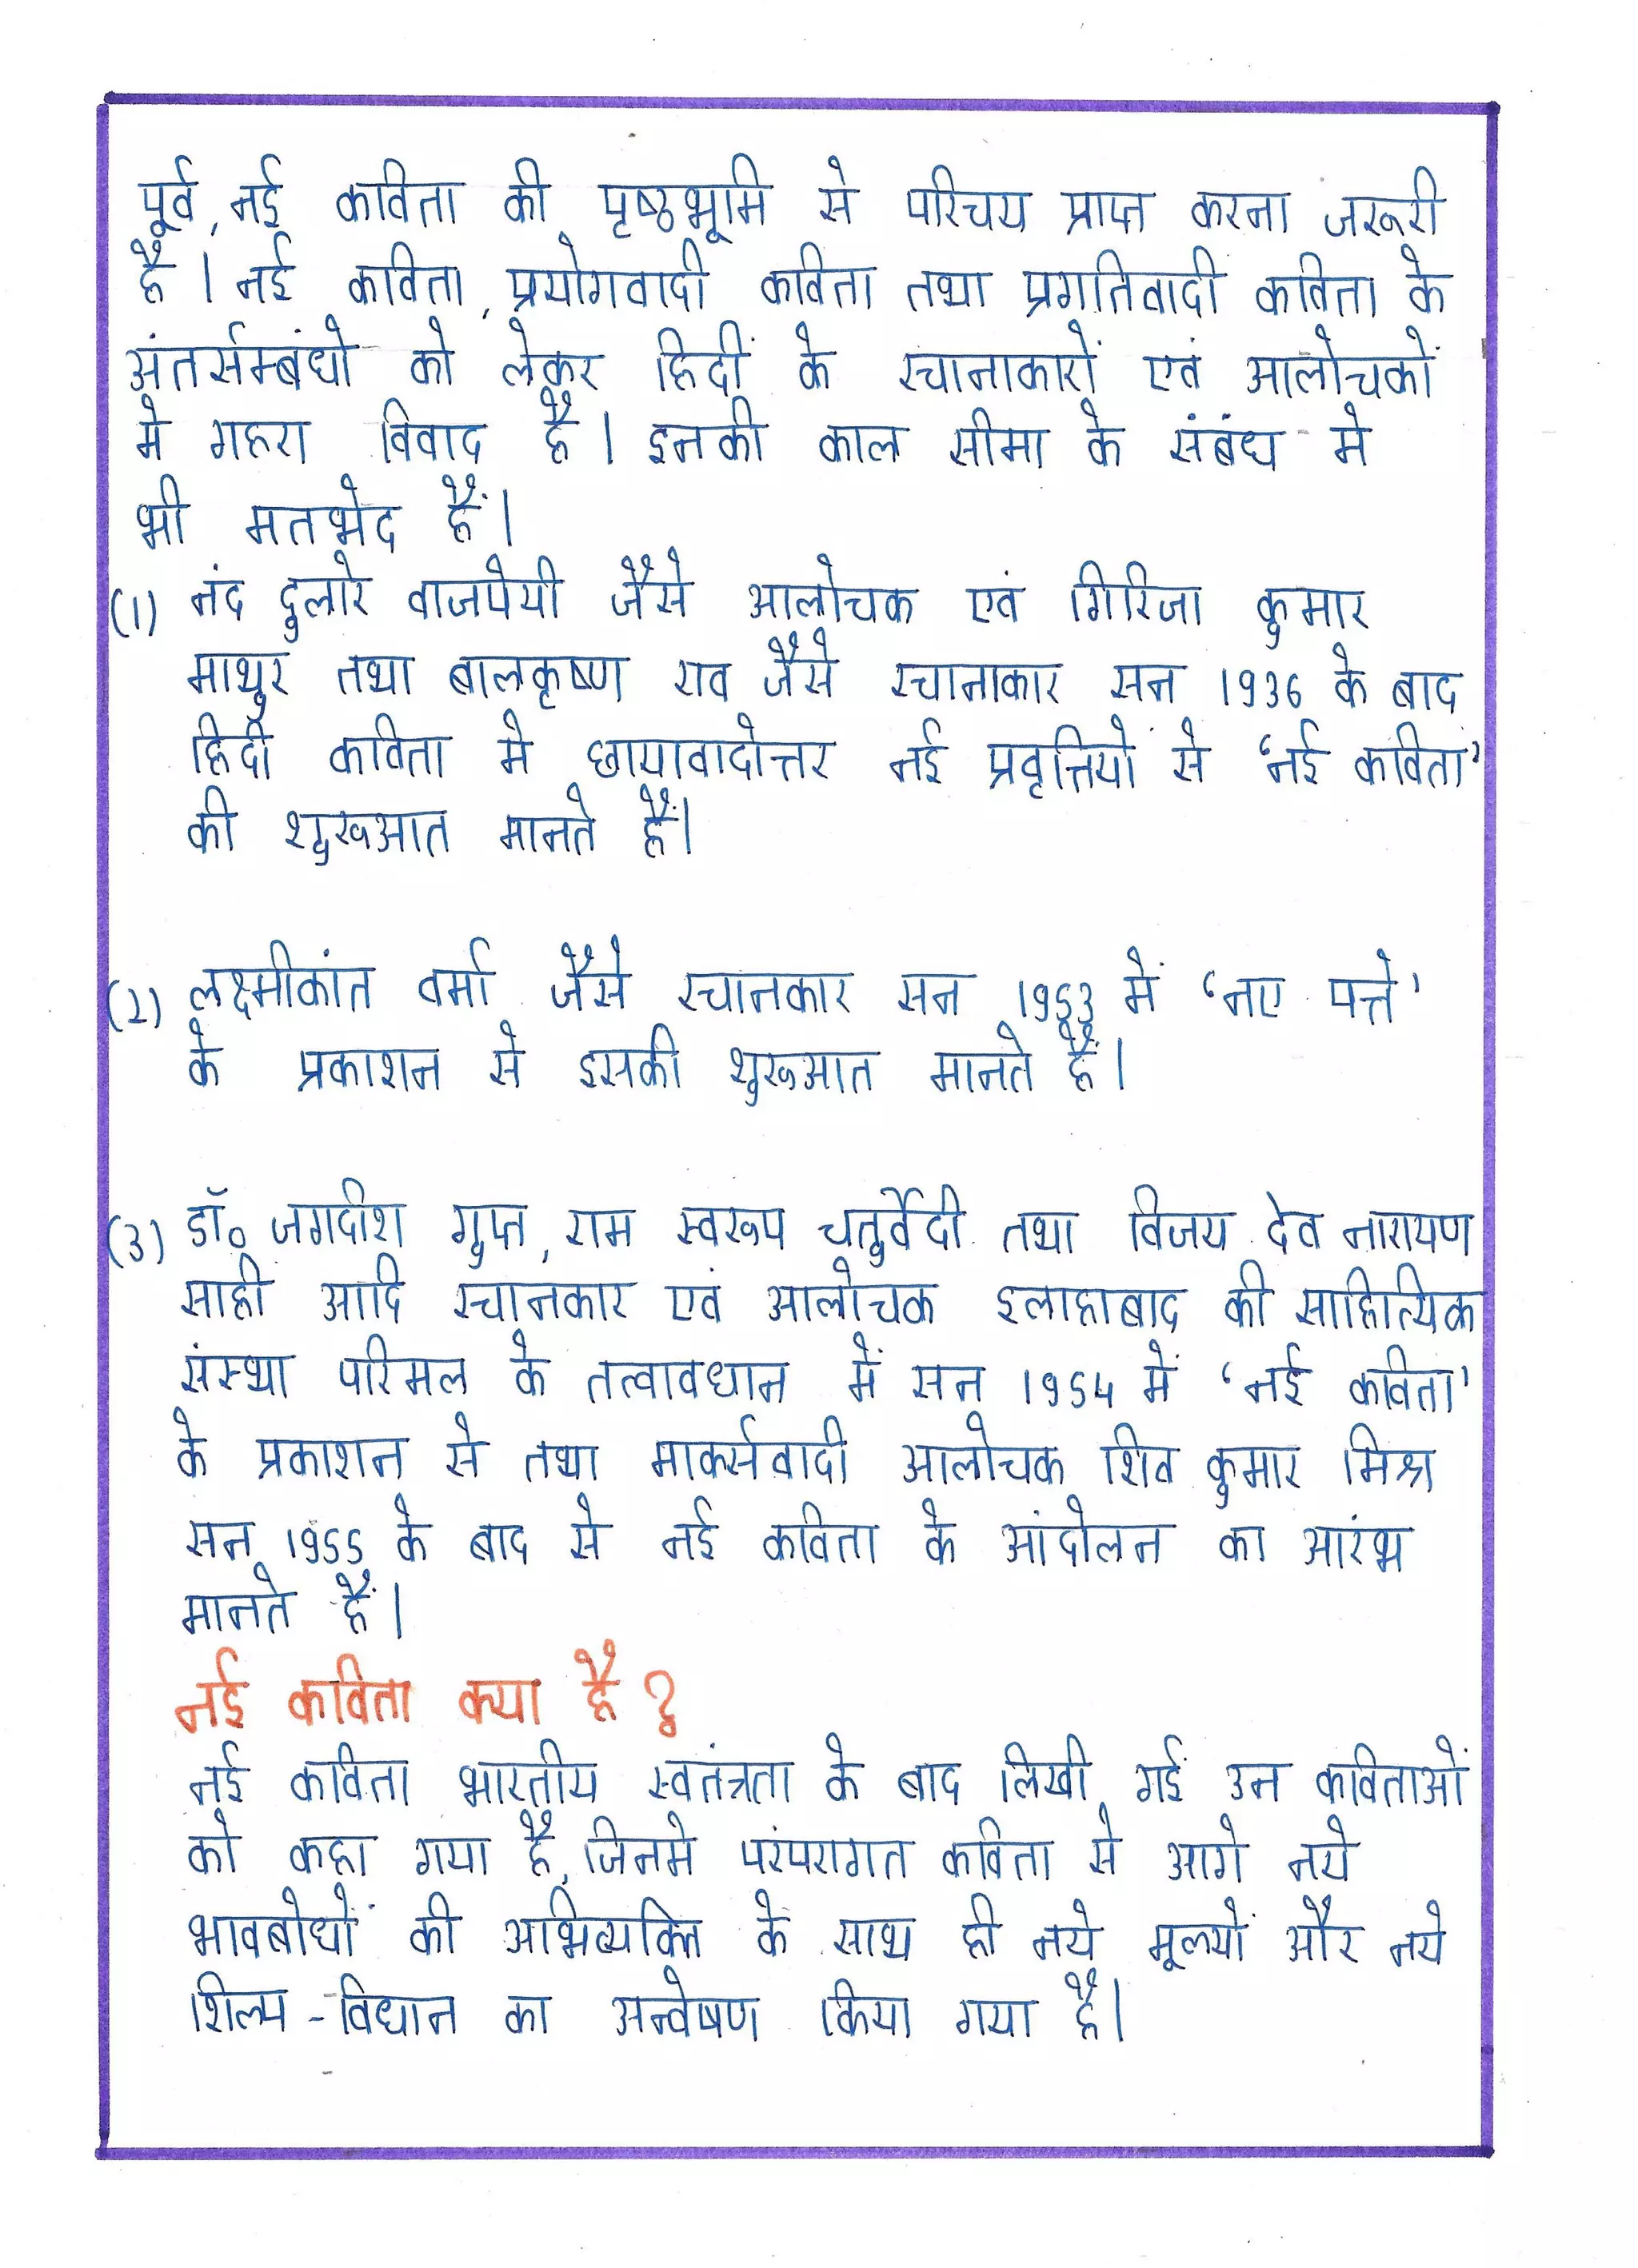 पूर्व, नई कविता की पृष्ठभूमि से परिचय प्राप्त करना जरूरी
है। नई कविता, प्रयोगवादी कविता तथा प्रगतिवादी कविता के
अंतर्सम्बंधो को लेकर हिदीं के रचानाकारों एवं आलोचकों
मे गहरा विवाद है। इनकी काल सीमा के संबंध मे
भी मतभेद हैं।
(1) नंद दुलारे वाजपेयी जैसे आलोचक एवं गिरिजा कुमार
माथुर तथा बालकृष्ण राव जैसे रचानाकार सन 1936 के बाद
हिदीं कविता मे छायावादोत्तर नई प्रवृत्तियो से ‘नई कविता’
की शुरूआत मानते हैं।
(2) लक्ष्मीकांत वर्मा जैसे रचानकार सन 1953 में ‘नए पत्ते’
के प्रकाशन से इसकी शुरूआत मानते हैं।
(3) डॉ० जगदीश गुप्त, राम स्वरूप चतुर्वेदी तथा विजय देव नारायण
साही आदि रचानकार एवं आलोचक इलाहाबाद की साहित्यिक
संस्था परिमल के तत्वावधान में सन 1954 में ‘नई कविता’
के प्रकाशन से तथा मार्क्सवादी आलोचक शिव कुमार मिश्र
सन 1955 के बाद से नई कविता के आंदोलन का आरंभ
मानते हैं।
नई कविता क्या है?
नई कविता भारतीय स्वतंत्रता के बाद लिखी गई उन कविताओं
को कहा गया है, जिनमे परंपरागत कविता से आगे नये
भावबोधों की अभिव्यक्ति के साथ ही नये मूल्यों और नये
शिल्प-विधान का अन्वेषण किया गया है।